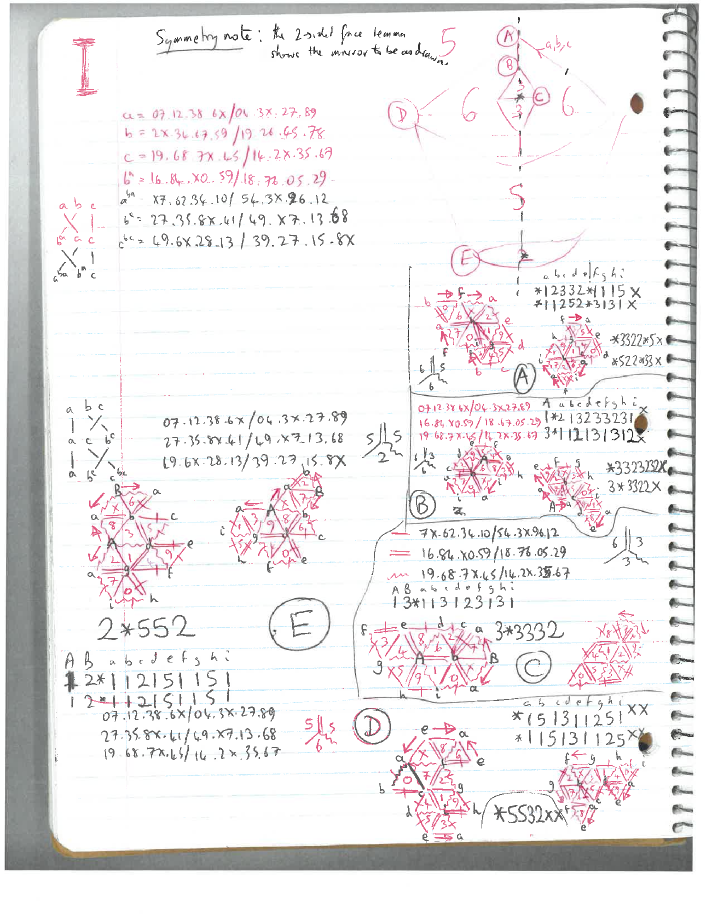 I
Symmetry note: the 2-sided face lemma
shows the mirror to be as drawn.
a = 07.12.38.6X/04.3X.27.89
b = 2X.34.67.59/19.26.45.78
c = 19.68.7X.45/14.2X.35.67
bᵃ = 16.84.X0.59/18.76.05.29
aᵇᵃ X7.62.34.10/54.3X.96.12
bᶜ = 27.35.8X.41/49.X7.13.68
cᵇᶜ = 49.6X.28.13/39.27.15.8X
a b c
bᵃ a c
aᵇᵃ bᵃ c
5
A
a,b,c
B
C
D
6
6
3
*
3
5
E
*
a b c d e f g h i
*12332*1115X
*11252*3131X
*3322*5X
*522*33X
6 5
6
A
07.12.38.6X/04.3X.27.89
16.84.X0.59/18.67.05.29
19.68.7X.45/14.2X.35.67
A a b c d e f g h i
1*213233231X
3*112131312X
*3323232X
3*3322X
6 3
6
B
7X.62.34.10/54.3X.96.12
16.84.X0.59/18.76.05.29
19.68.7X.45/14.2X.35.67
6 3
3
A B a b c d e f g h i
13*113123131
3*3332
C
a b c
a c bᶜ
a bᶜ cᵇᶜ
07.12.38.6X/04.3X.27.89
27.35.8X.41/49.X7.13.68
49.6X.28.13/39.27.15.8X
5 5
2
2*552
E
A B a b c d e f g h i
12*112151151
12*112151151
07.12.38.6X/04.3X.27.89
27.35.8X.41/49.X7.13.68
19.68.7X.45/14.2X.35.67
5 5
6
D
a b c d e f g h i
*151311251XX
*115131125XX
*5532XX